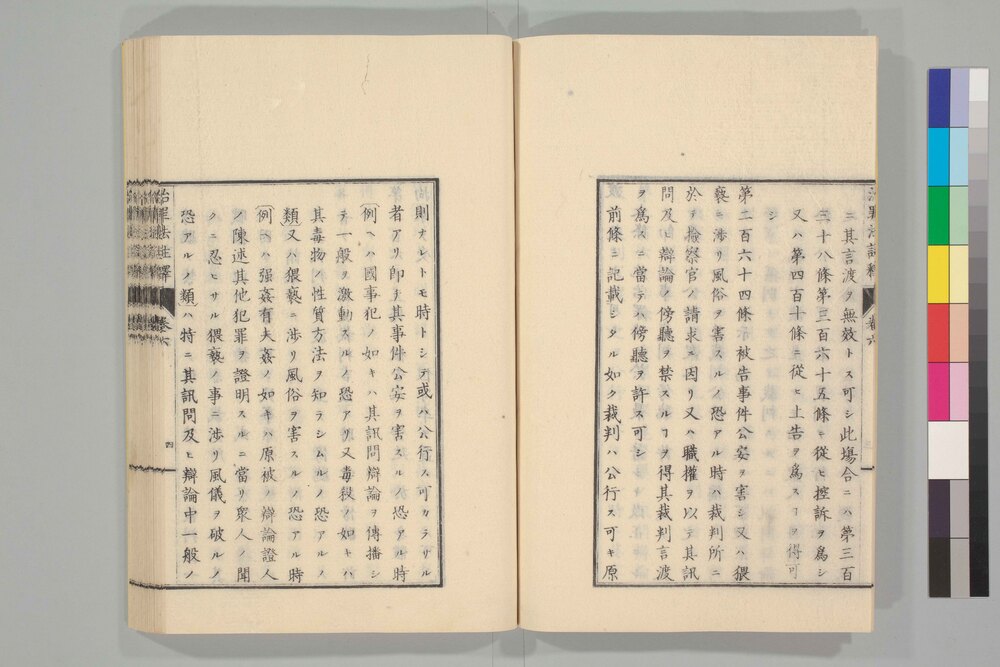 ニ其言渡ヲ無效トス可シ此塲合ニハ第三百
三十八條第三百六十五條ニ從ヒ控訴ヲ爲シ
又ハ第四百十條ニ從ヒ上告ヲ爲スヿヲ得可
シ
第二百六十四條 被告事件公安ヲ害シ又ハ猥
褻ニ涉リ風俗ヲ害スルノ恐アル時ハ裁判所ニ
於テ檢察官ノ請求ニ因リ又ハ職權ヲ以テ其訊
問及ヒ辯論ノ傍聽ヲ禁スルヿヲ得其裁判言渡
ヲ爲スニ當テハ傍聽ヲ許ス可シ
前條ニ記載シタル如ク裁判ハ公行ス可キ原
則ナレトモ時トシテ或ハ公行ス可カラサル
者アリ卽チ其事件公安ヲ害スルノ恐アル時
(例ヘハ國事犯ノ如キハ其訊問辯論ヲ傳播シ
テ一般ヲ激動スルノ恐アリ又毒殺ノ如キハ
其毒物ノ性質方法ヲ知ラシムルノ恐アルノ
類又ハ猥褻ニ涉リ風俗ヲ害スルノ恐アル時
(例ヘハ强姦有夫姦ノ如キハ原被ノ辯論證人
ノ陳述其他犯罪ヲ證明スルニ當リ衆人ノ聞
クニ忍ヒサル猥褻ノ事ニ涉リ風儀ヲ破ルノ
恐アルノ類ハ特ニ其訊問及ヒ辯論中一般ノ
治罪法註釋 卷六
四